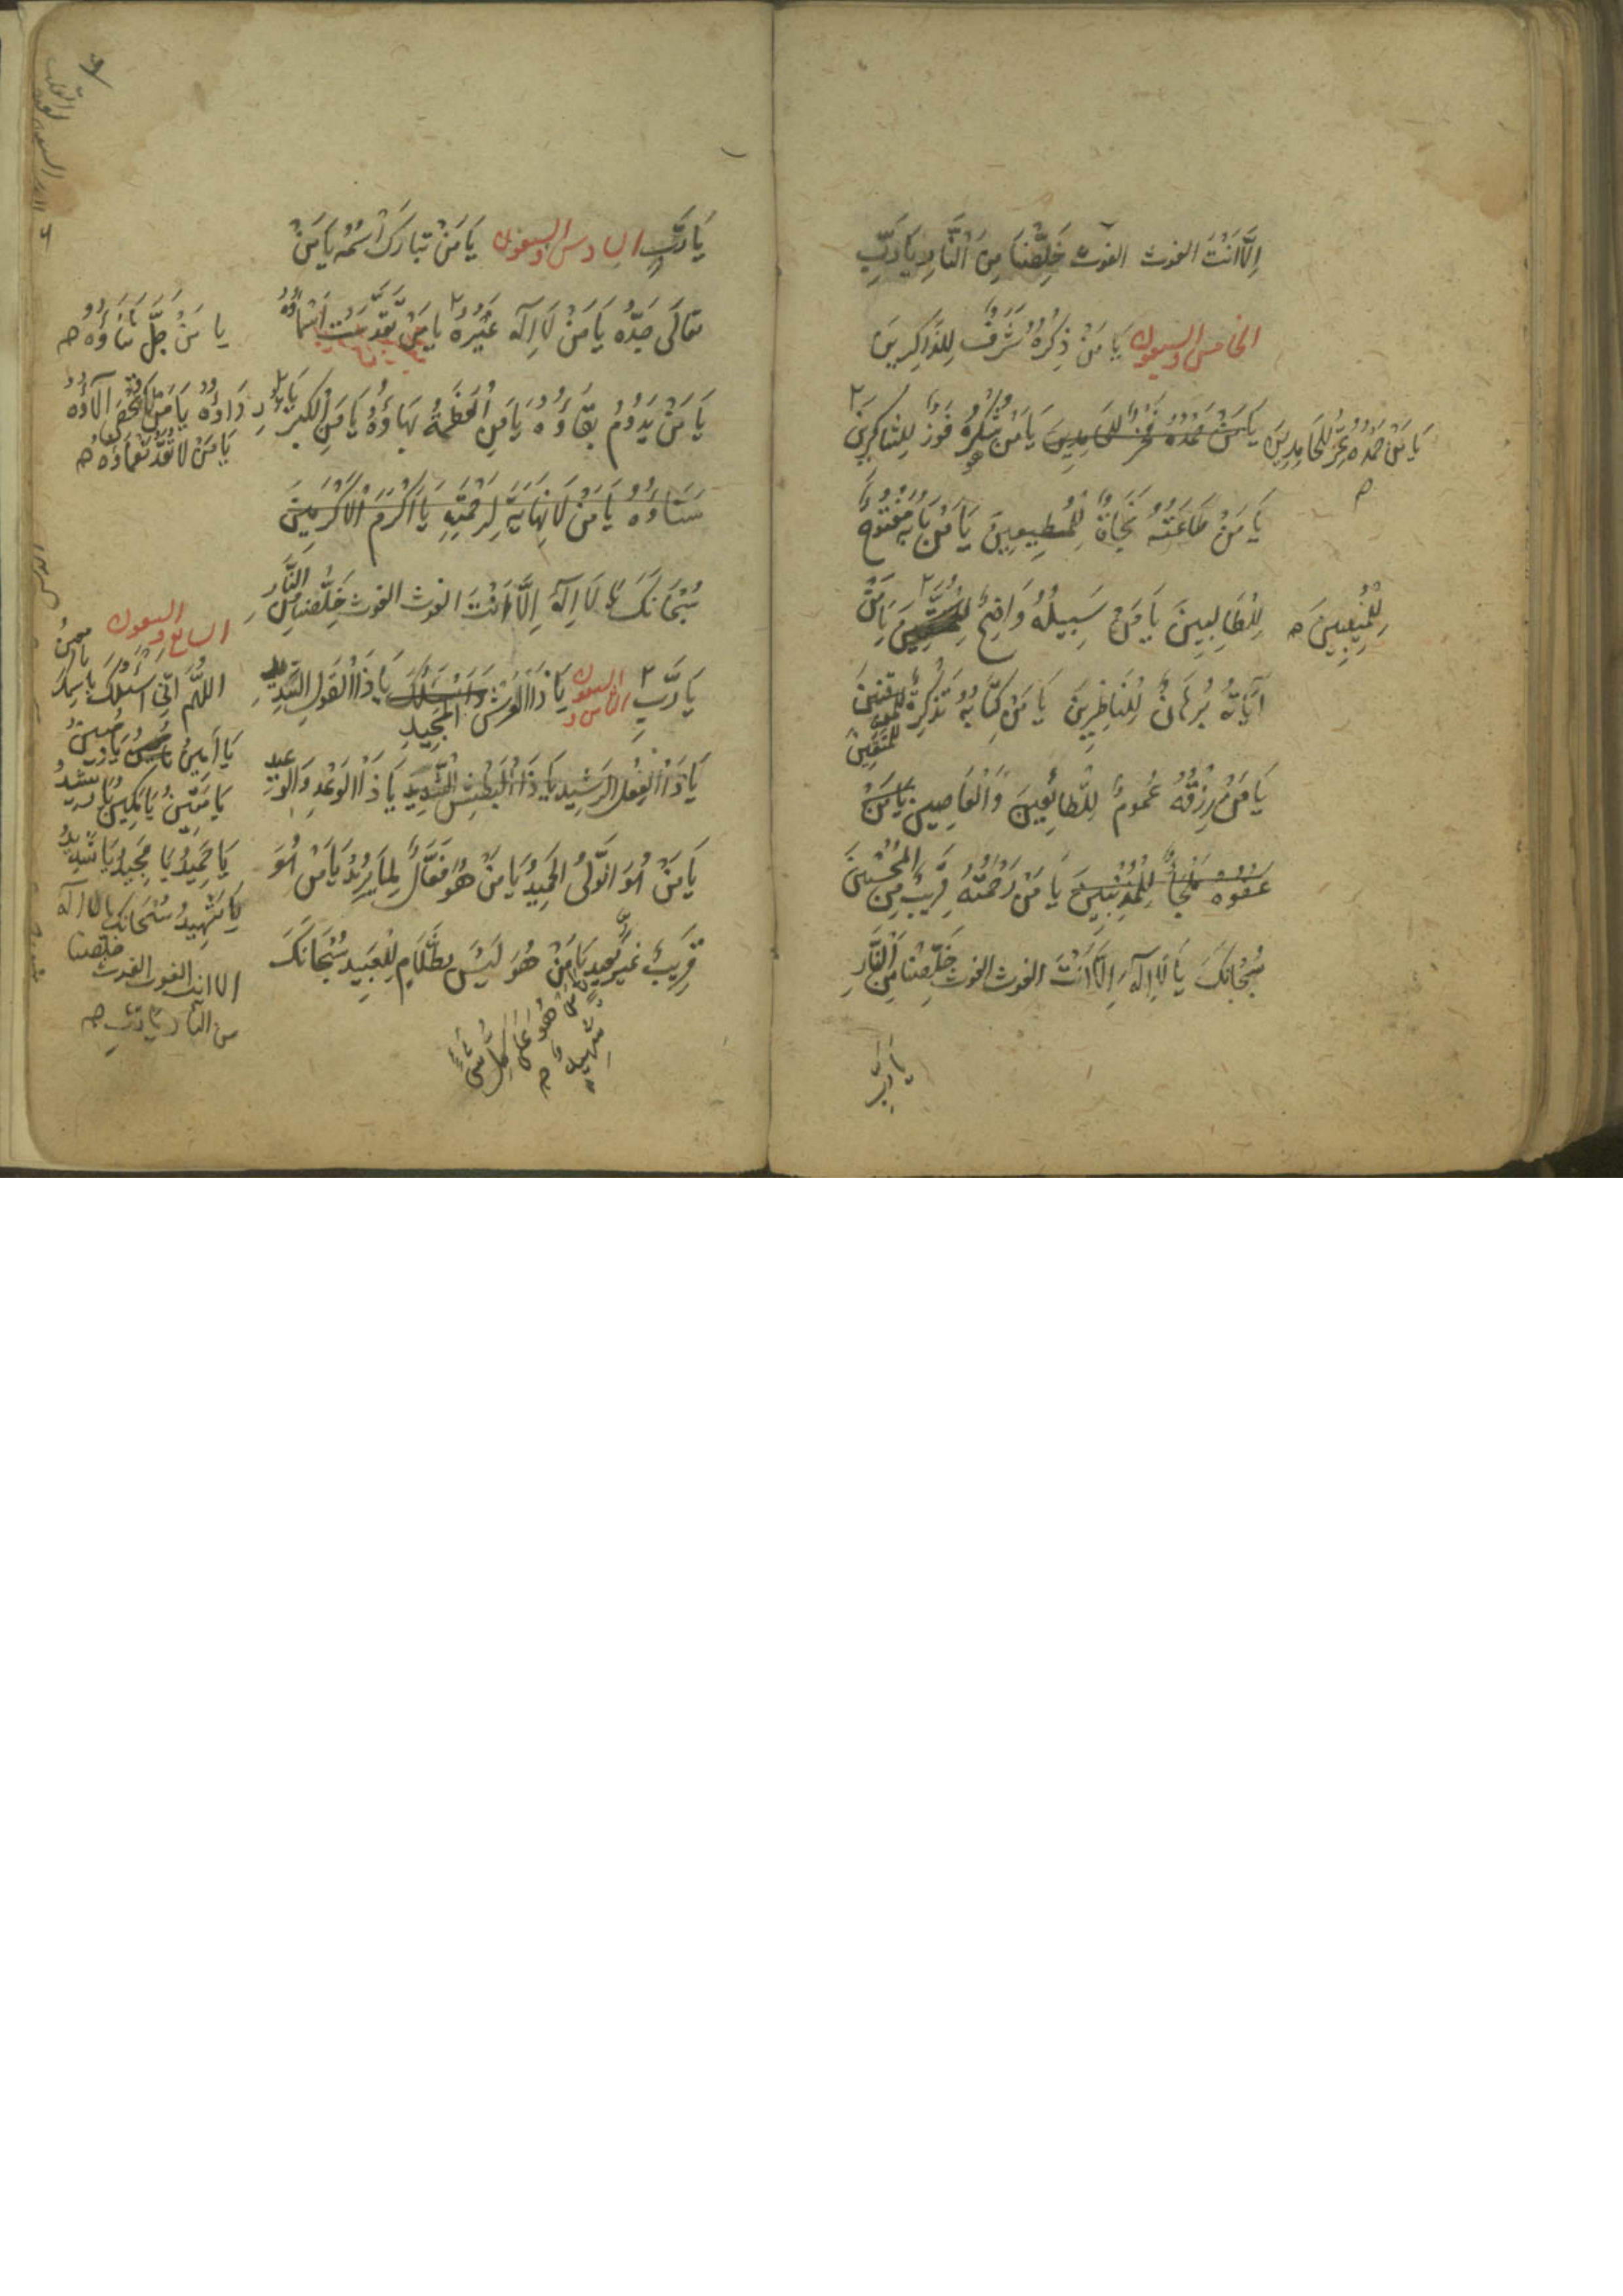 اِلَّا اَنْتَ الغوث الغوث خَلِّصْنَا مِنَ النَّارِ يَا رَبِّ
الخامس والسبعون يَا مَنْ ذِكْرُهُ شَرَفٌ لِلذَّاكِرِينَ
يَا مَنْ حَمْدُهُ عِزٌّ لِلْحَامِدِينَ يَا مَنْ حَمْدُهُ فَخْرٌ لِلحَامِدِينَ يَا مَنْ شُكْرُهُ فَوْزٌ لِلشَّاكِرِينَ
يَا مَنْ طَاعَتُهُ نَجَاةٌ لِلْمُطِيعِينَ يَا مَنْ بَابُهُ مَفْتُوحٌ
لِلطَّالِبِينَ يَا مَنْ سَبِيلُهُ وَاضِحٌ يَا مَنْ
لِلْمُنِيبِينَ
آيَاتُهُ بُرْهَانٌ لِلنَّاظِرِينَ يَا مَنْ كِتَابُهُ تَذْكِرَةٌ
لِلْمُتَّقِينَ
يَا مَنْ رِزْقُهُ عُمُومٌ لِلطَّائِعِينَ وَالْعَاصِينَ يَا مَنْ
عَفْوُهُ مَلْجَأٌ لِلْمُذْنِبِينَ يَا مَنْ رَحْمَتُهُ قَرِيبٌ مِنَ المُحْسِنِينَ
سُبْحَانَكَ يَا لَا اِلَهَ اِلَّا اَنْتَ الغوث الغوث خَلِّصْنَا مِنَ النَّارِ
يَا رَبِّ
يَا رَبِّ السادس والسبعون يَا مَنْ تَبَارَكَ اسْمُهُ يَا مَنْ
تَعَالَى جَدُّهُ يَا مَنْ لَا اِلَهَ غَيْرُهُ يَا مَنْ تَقَدَّسَتْ اَسْمَاؤُهُ
يا مَنْ جَلَّ ثَنَاؤُهُ
يَا مَنْ يَدُومُ بَقَاؤُهُ يَا مَنِ الْعَظَمَةُ بَهَاؤُهُ يَا مَنِ الْكِبْرِيَاءُ رِدَاؤُهُ يَا مَنْ لَا تُحْصَى آلَاؤُهُ
يَا مَنْ لَا تُعَدُّ نَعْمَاؤُهُ
سَنَاؤُهُ يَا مَنْ لَا نِهَايَةَ لِرَحْمَتِهِ يَا اَكْرَمَ الْاَكْرَمِينَ
سُبْحَانَكَ يَا لَا اِلَهَ اِلَّا اَنْتَ الغوث الغوث خَلِّصْنَا مِنَ النَّارِ
يَا رَبِّ الثامن والسبعون يَا ذَا الْعَرْشِ المَجِيدِ يَا ذَا الْقَوْلِ السَّدِيدِ
يَا ذَا الْفِعْلِ الرَشِيدِ يَا ذَا الْبَطْشِ الشَّدِيدِ يَا ذَا الْوَعْدِ وَالوَعِيدِ
يَا مَنْ هُوَ الْوَلِيُّ الحَمِيدُ يَا مَنْ هُوَ فَعَّالٌ لِمَا يُرِيدُ يَا مَنْ هُوَ
قَرِيبٌ غَيْرُ بَعِيدٍ يَا مَنْ هُوَ لَيْسَ بِظَلَّامٍ لِلْعَبِيدِ سُبْحَانَكَ
يَا مَنْ هُوَ عَلَى كُلِّ شَيْءٍ شَهِيدٌ
السابع والسبعون
اللَّهُمَّ اِنِّي اَسْئَلُكَ بِاسْمِكَ يَا مُعِينُ
يَا أَمِينُ يَا مُبِينُ
يَا مَتِينُ يَا مَكِينُ يَا رَشِيدُ
يَا حَمِيدُ يَا مَجِيدُ يَا شَدِيدُ
يَا شَهِيدُ سُبْحَانَكَ يا لا اله
الا انت الغوث الغوث خلّصنا
من النار يا ربّ